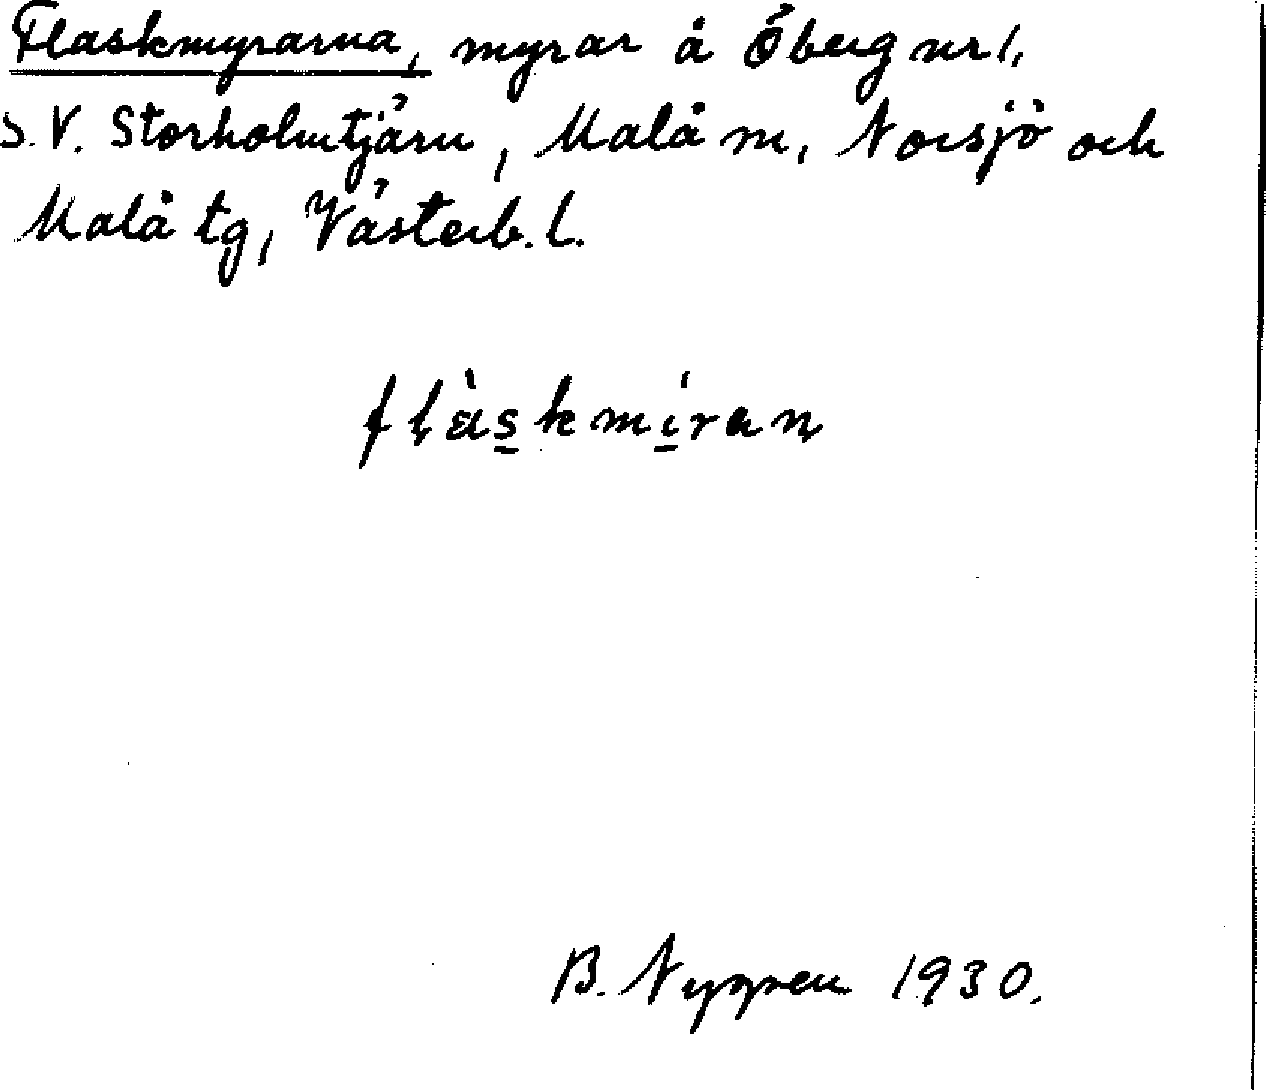 Flaskmyrarna, myrar å Öberg nr 1,
S.V. Storholmtjärn, Malå sn, Norsjö och
Malå tg, Västerb. l.
flàskmíran
B. Nygren 1930.